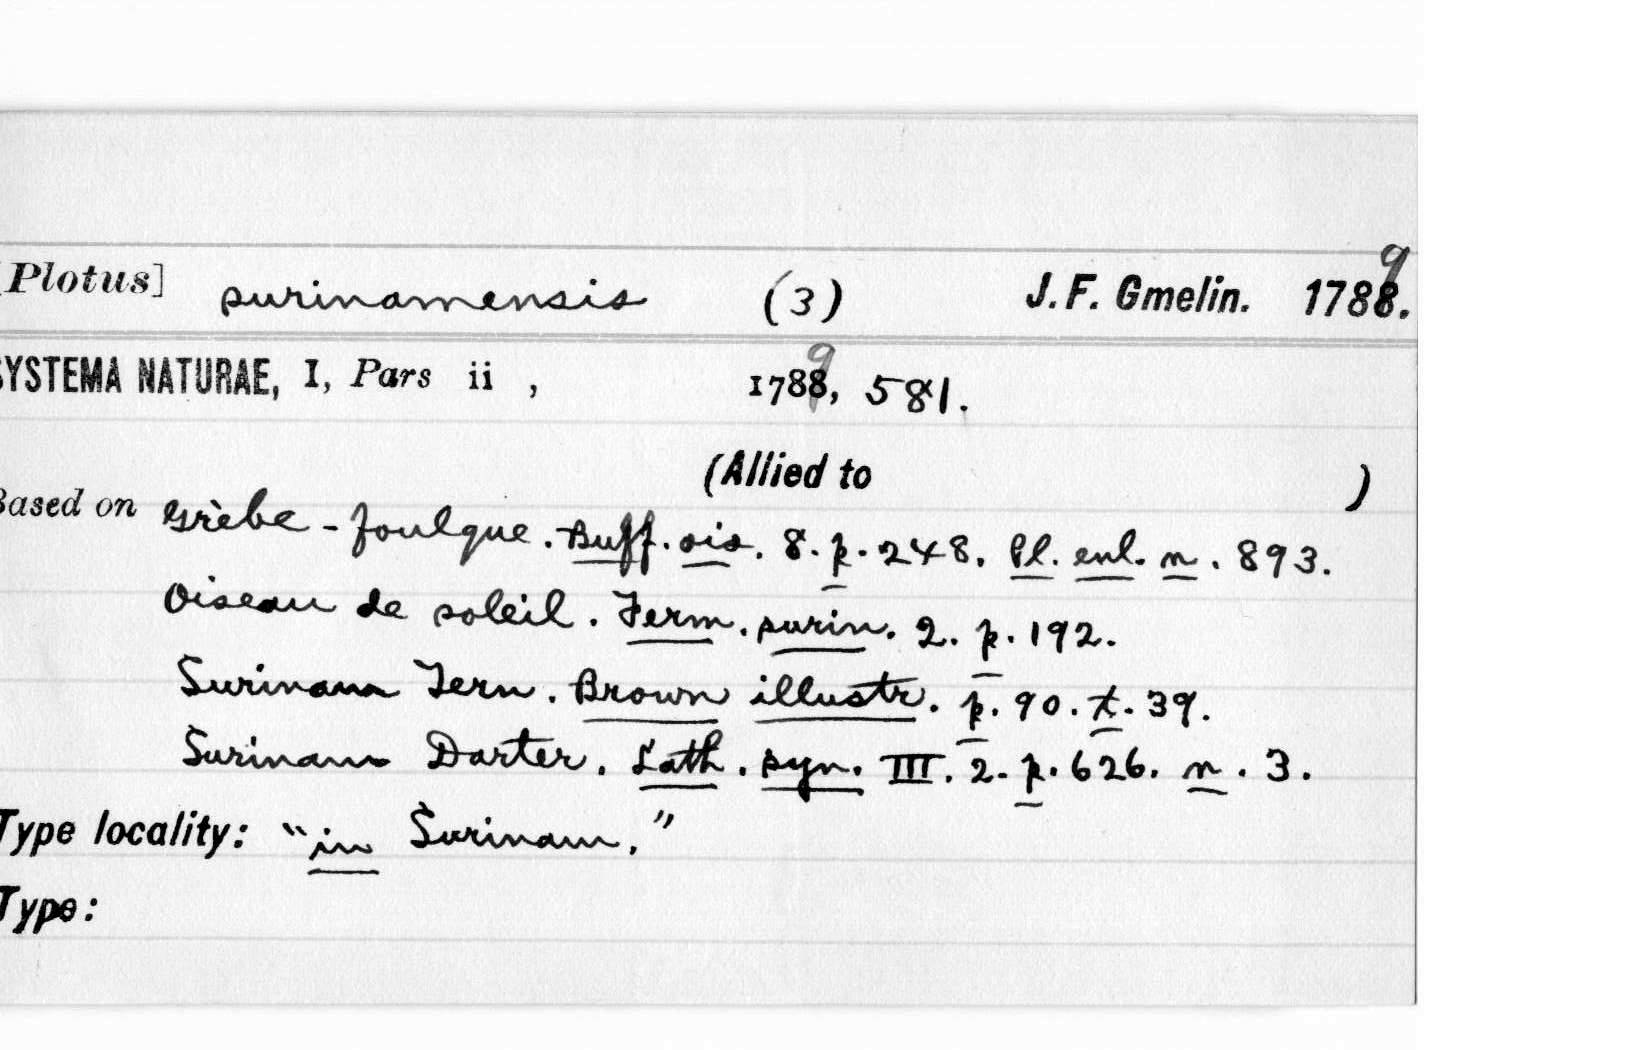 [Plotus] surinamensis (3) J. F. Gmelin. 1789.
SYSTEMA NATURAE, I, Pars ii , 1789, 581.
(Allied to )
Based on Grèbe-foulque. Buff. ois. 8. p. 248. Pl. enl. n. 893.
Oiseau de soleil. Ferm. surin. 2. p. 192.
Surinam Tern. Brown illustr. p. 90. t. 39.
Surinam Darter. Lath. syn. III. 2. p. 626. n. 3.
Type locality: "in Surinam."
Type: